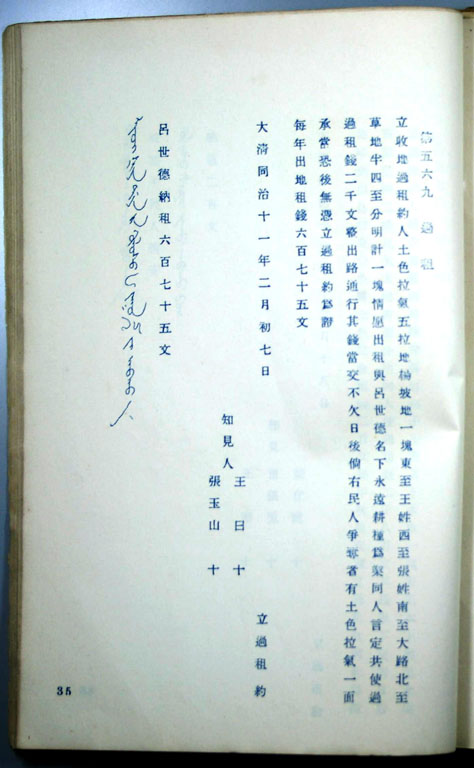 第五六九　過租
立收地過租約人土色拉氣五拉地楊坡地一塊東至王姓西至張姓南至大路北至
草地半四至分明計一塊情愿出租與呂世德名下永遠耕種爲業同人言定共使過
過租錢二千文整出路通行其錢當交不欠日後倘右民人爭奪者有土色拉氣一面
承當恐後無憑立過租約爲證
每年出地租錢六百七十五文
大淸同治十一年二月初七日　立過租約
知見人
王曰十
張玉山十
呂世德納租六百七十五文
35